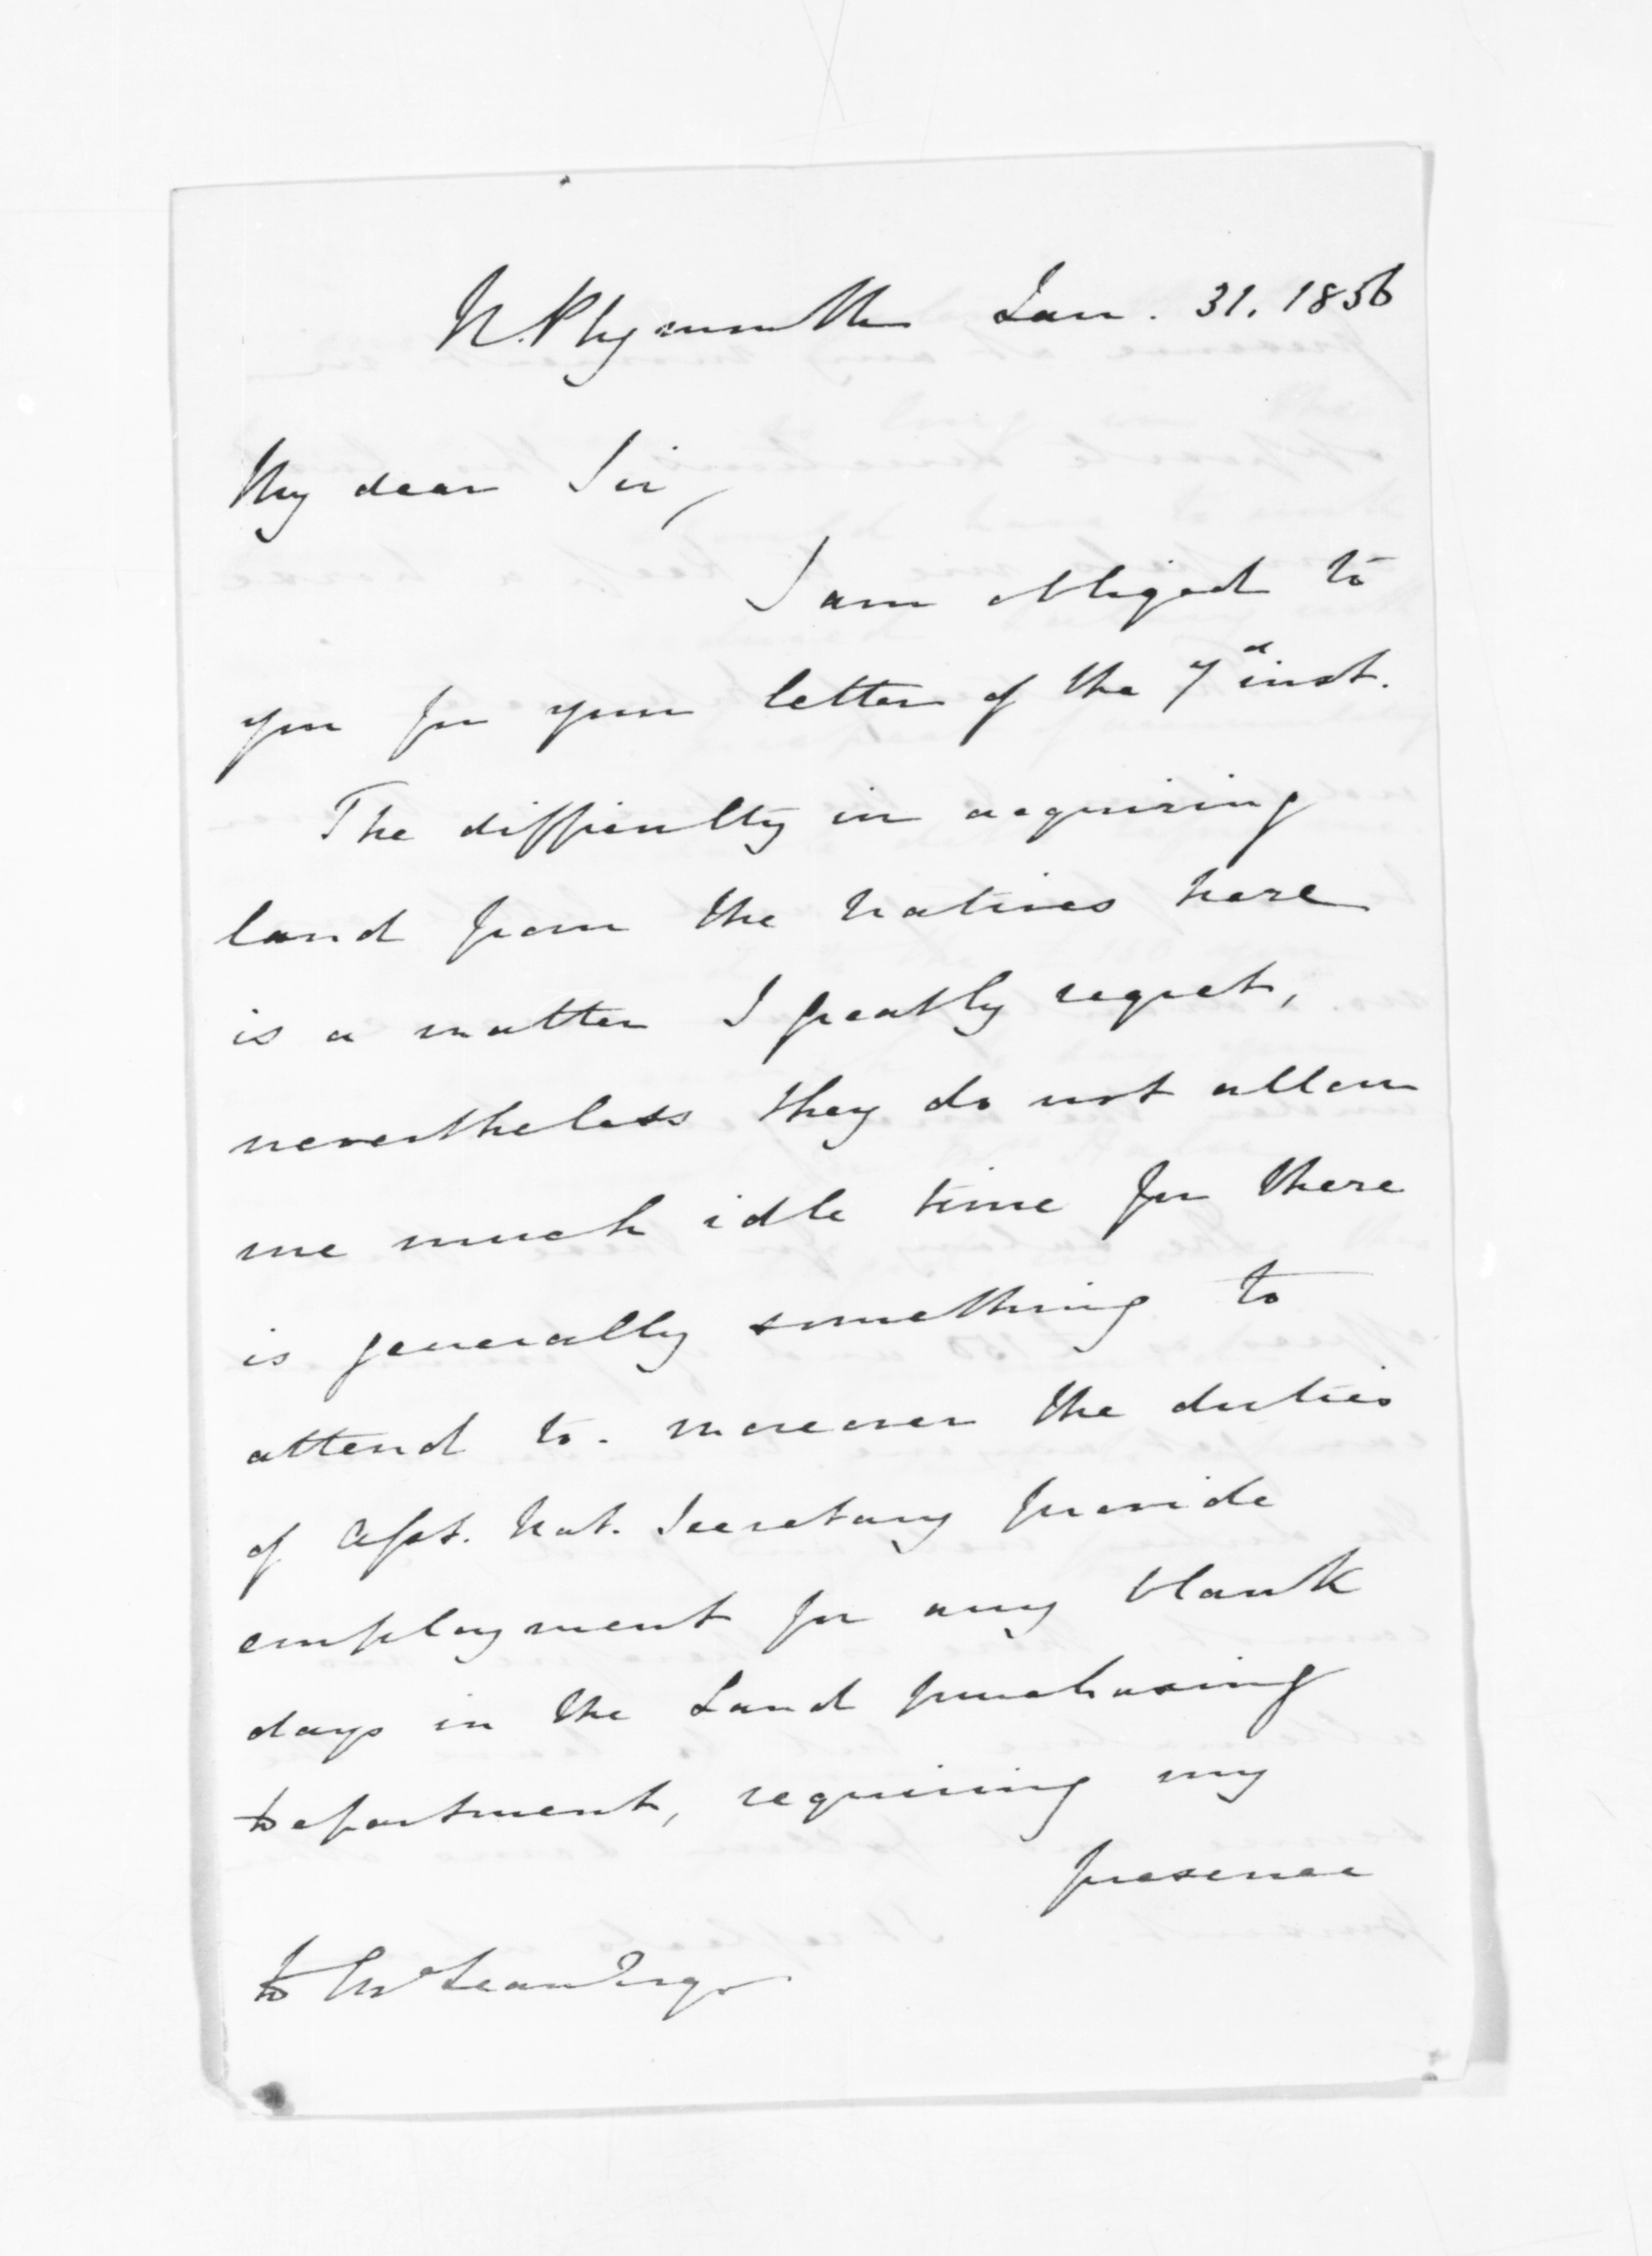 N. Plymouth Jan. 31. 1856
My dear Sir,
I am obliged to
you for your letter of the 7th inst.
The difficulty in acquiring
land from the Natives here
is a matter I greatly regret,
nevertheless they do not allow
me much idle time for there
is generally something to
attend to. moreover the duties
of Asst. Nat. Secretary provide
employment for any blank
days in the Land purchasing
Department, requiring my
presence
D McLean Esqr